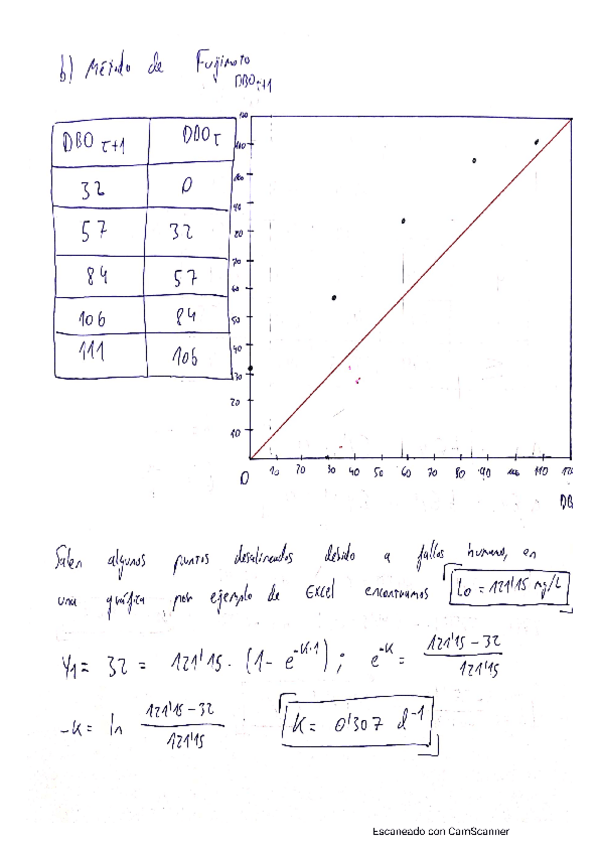 b) Método de Fujimoto
DBO τ+1
DBO τ+1 DBO τ
32 0
57 32
84 57
106 84
111 106
120
110
100
90
80
70
60
50
40
30
20
10
0 10 20 30 40 50 60 70 80 90 100 110 120
DB
Salen algunos puntos desalineados debido a fallos humano, en
una gráfica por ejemplo de Excel encontramos Lo = 121'15 mg/L
Y1 = 32 = 121'15 · (1 - e^-K·1) ; e^-K = (121'15 - 32) / 121'15
-K = ln (121'15 - 32) / 121'15 K = 0'307 d^-1
Escaneado con CamScanner